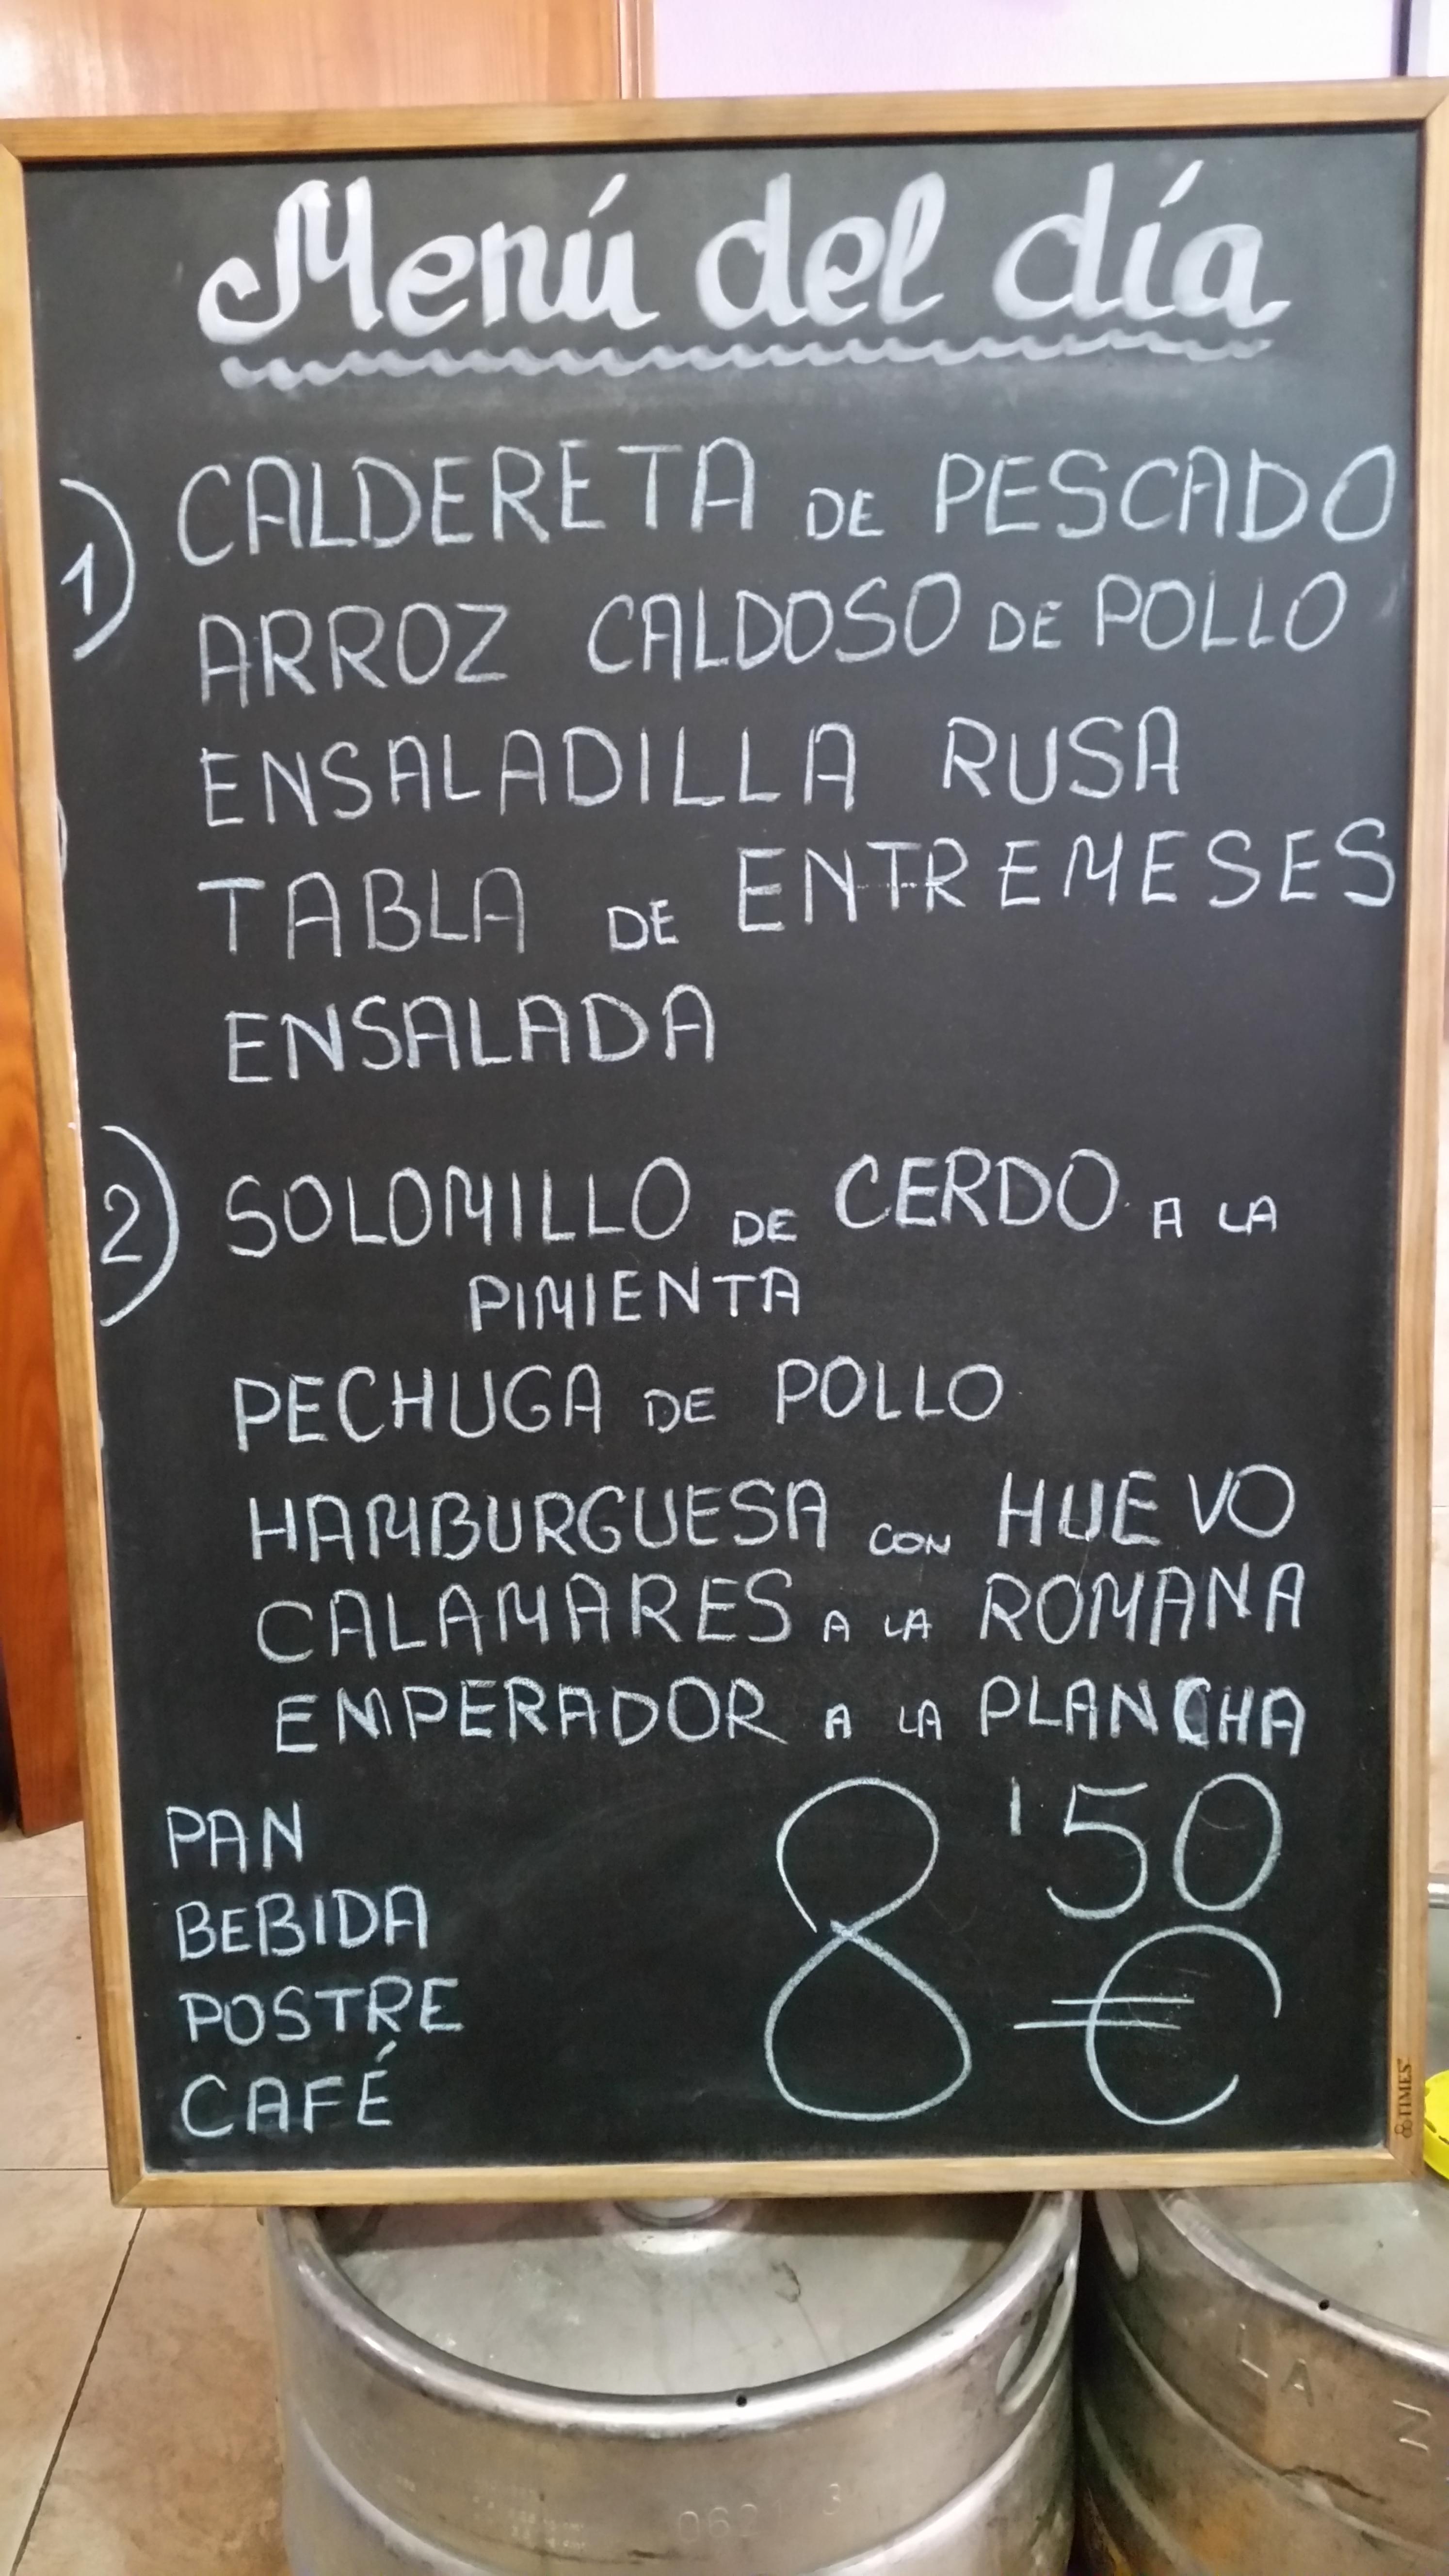 Menú del día
1) CALDERETA DE PESCADO
ARROZ CALDOSO DE POLLO
ENSALADILLA RUSA
TABLA DE ENTREMESES
ENSALADA
2) SOLOMILLO DE CERDO A LA
PIMIENTA
PECHUGA DE POLLO
HAMBURGUESA CON HUEVO
CALAMARES A LA ROMANA
EMPERADOR A LA PLANCHA
PAN
BEBIDA
POSTRE
CAFÉ
8'50
€
TIMES
LA Z